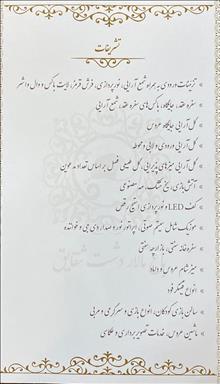 تشریفات
» تزئینات ورودی به همراه شمع آرایی، نورپردازی، فرش قرمز، لایت باکس و وال واشر
» سفره عقد، جایگاه، باکس‌های سفره عقد، شمع آرایی
» گل آرایی جایگاه عروس
» گل آرایی ورودی و لابی و محوطه
» گل آرایی میزهای پذیرایی، گل طبیعی فصل بر اساس تعداد مدعوین
» آتش بازی، یخ خشک، مه مصنوعی
» کف LED و نورپردازی استیج رقص
» موزیک شامل سیستم صوتی، اپراتور نور و صدا، دی جی و خواننده
» سفره خانه سنتی، بازارچه سنتی
» میز شام عروس و داماد
» انواع فینگرفود
» سالن بازی کودکان، انواع بازی و سرگرمی و مربی
» ماشین عروس، خدمات تصویربرداری و عکاسی
تالار دشت شقایق